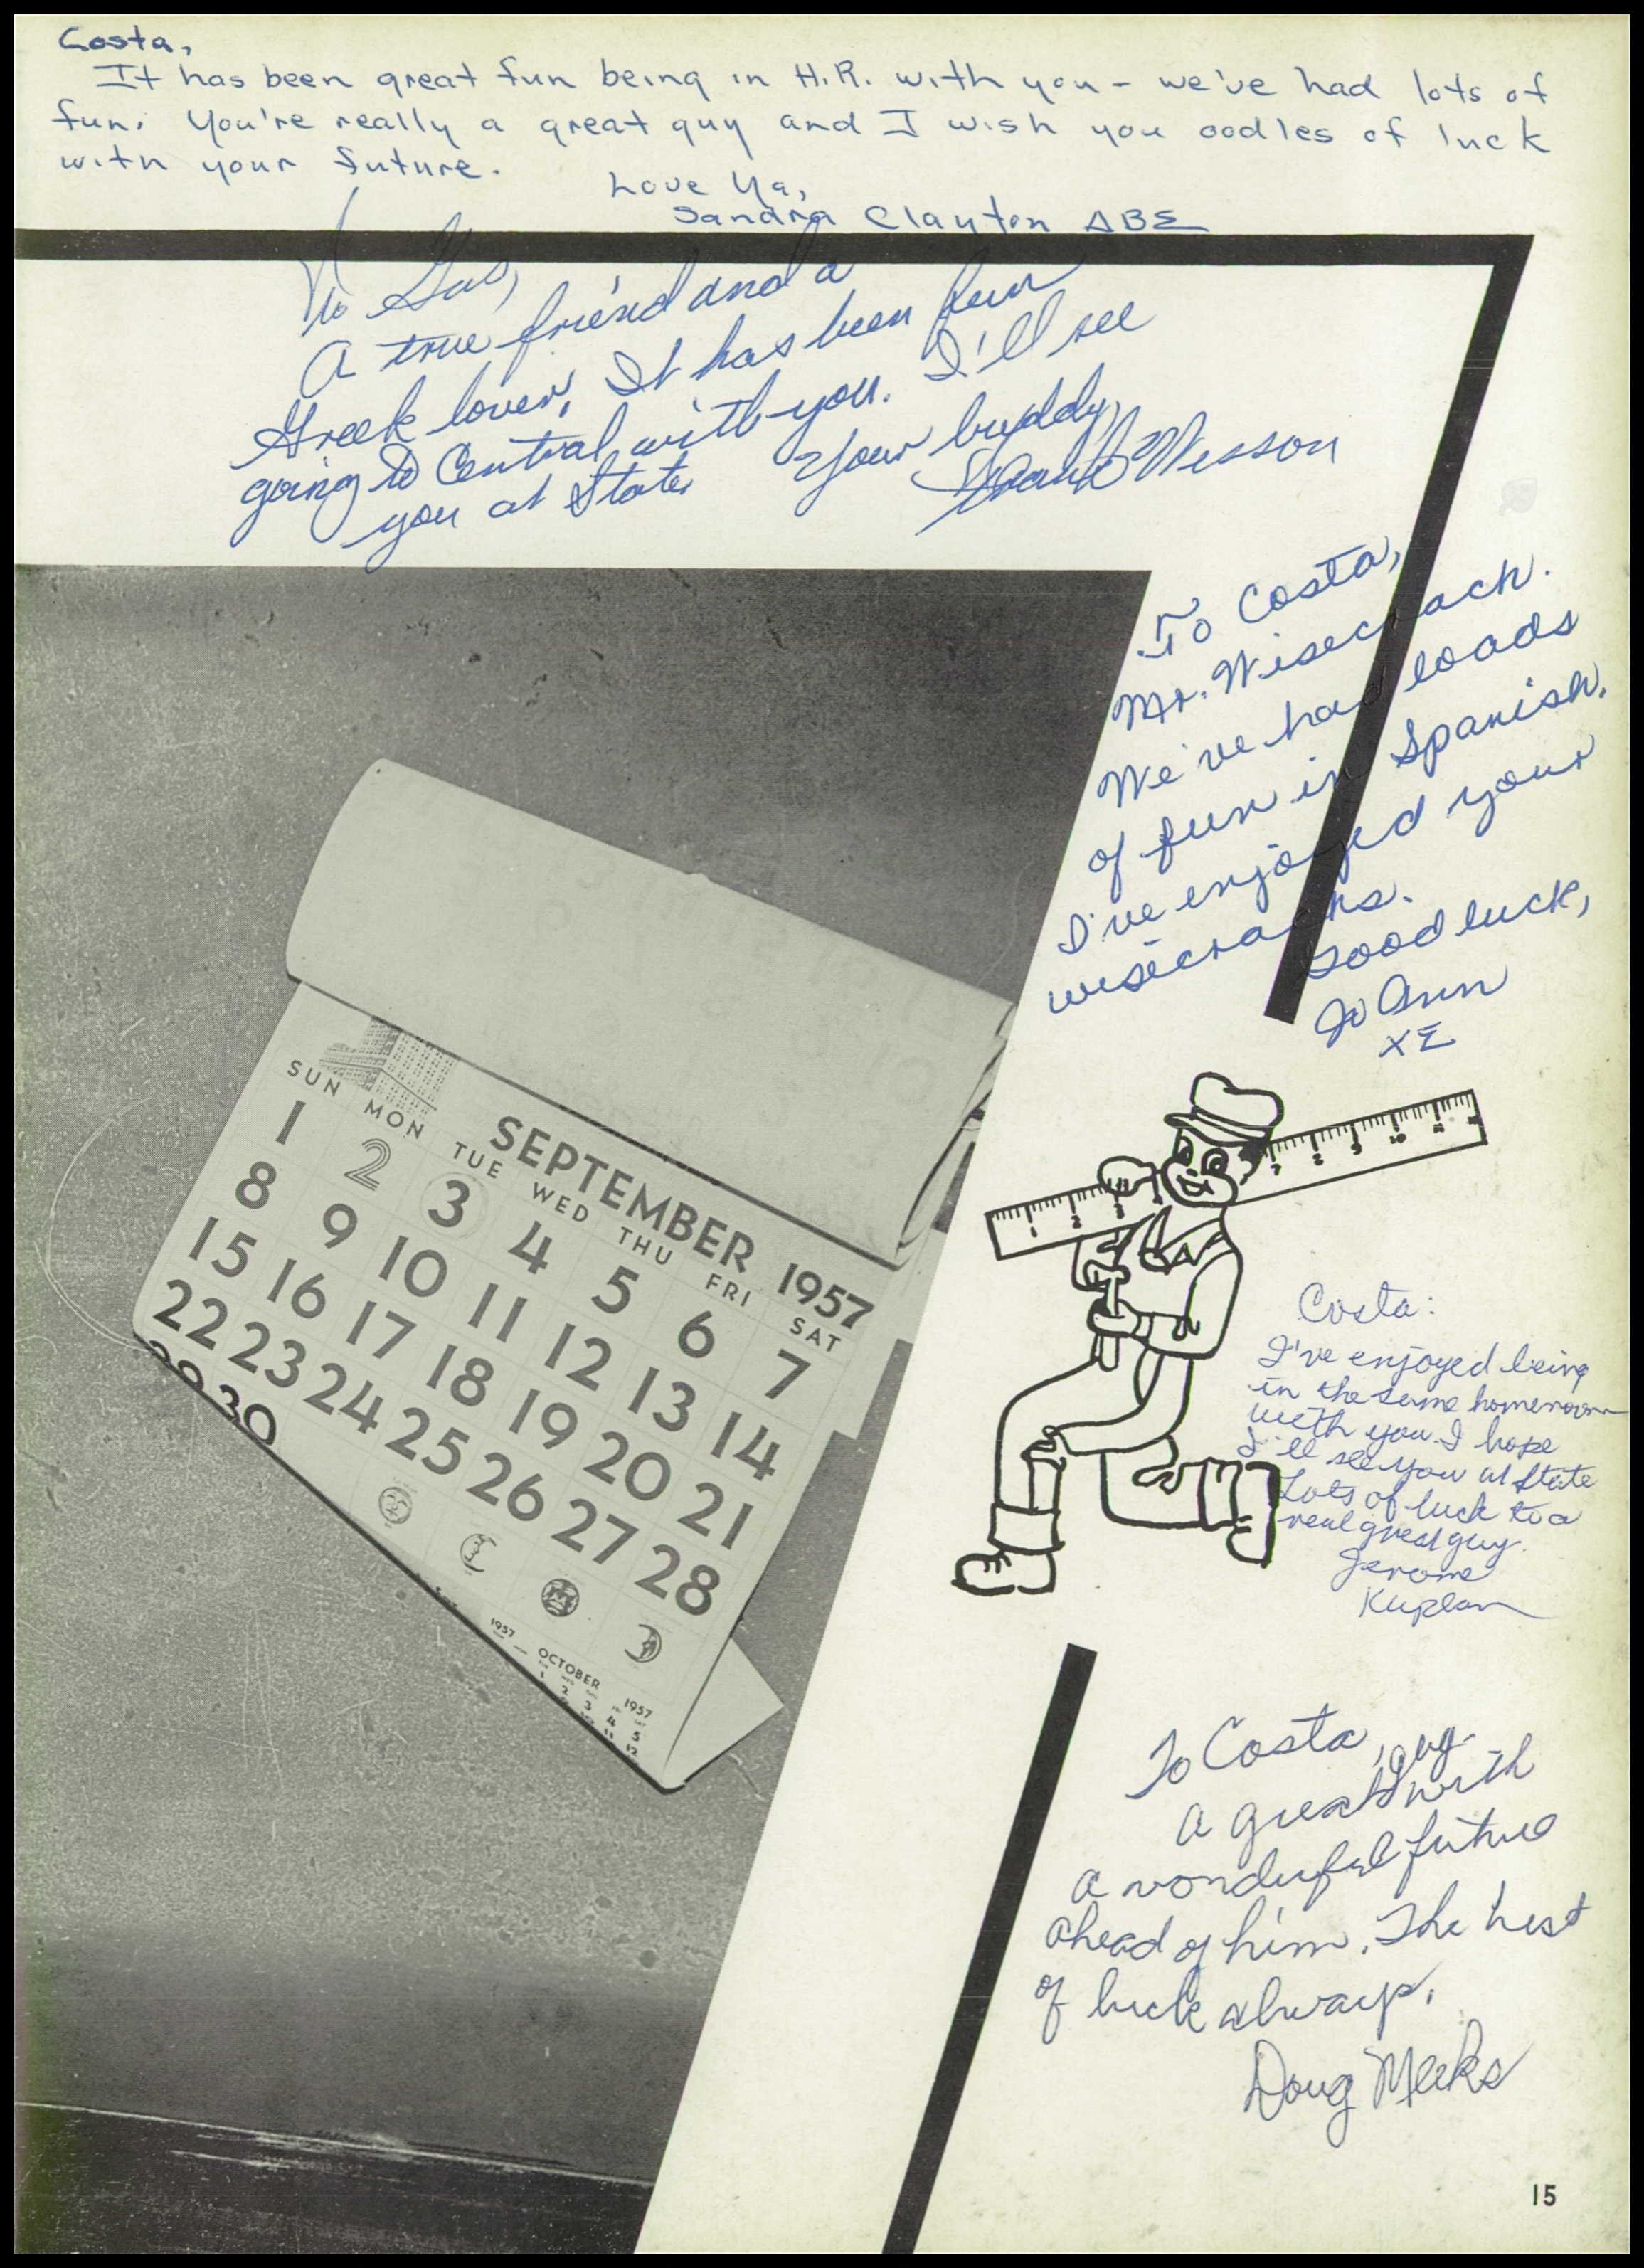 Costa,
It has been great fun being in H.R. with you - we've had lots of
fun. You're really a great guy and I wish you oodles of luck
with your future.
Love Ya,
Sandra Clayton ΔBΣ
To Gus,
A true friend and a
Greek lover. It has been fun
going to Central with you. I'll see
you at State.
Your buddy,
Frank Wesson
To Costa,
Mr. Wisecrack.
We've had loads
of fun in Spanish.
I've enjoyed your
wisecracks.
Good luck,
Jo Ann
XΣ
SEPTEMBER 1957
SUN MON TUE WED THU FRI SAT
1 2 3 4 5 6 7
8 9 10 11 12 13 14
15 16 17 18 19 20 21
22 23 24 25 26 27 28
29 30
1957 OCTOBER 1957
1 2 3 4 5
10 11 12
Costa:
I've enjoyed being
in the same homeroom
with you. I hope
I'll see you at State
Lots of luck to a
real great guy.
Jerome
Kuplan
To Costa,
a great guy with
a wonderful future
ahead of him. The best
of luck always.
Doug Meeks
15